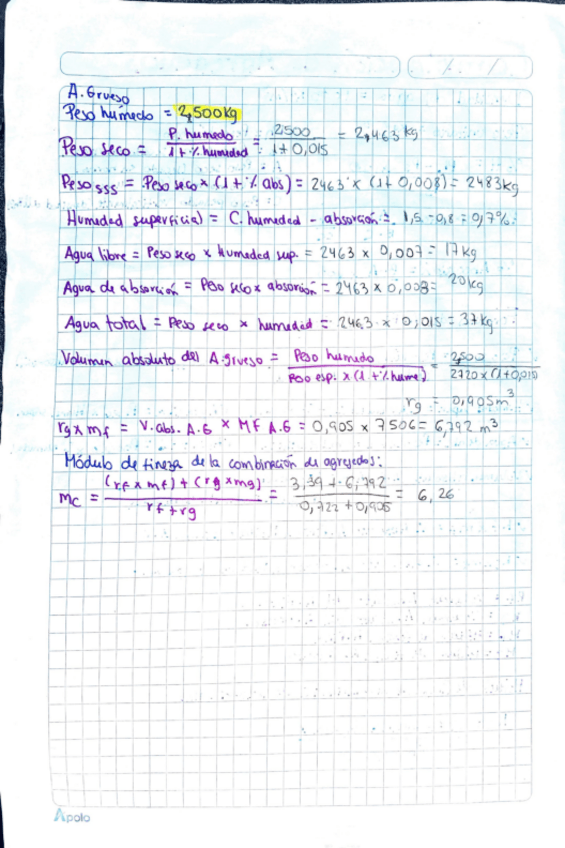 A. Grueso
Peso húmedo = 2,500 kg
Peso seco = P. humedo / 1 + % humedad = 2500 / 1 + 0,015 = 2,463 kg
Peso sss = Peso seco × (1 + % abs) = 2463 × (1 + 0,008) = 2483 kg
Humedad superficial = C. humedad - absorción = 1,5 - 0,8 = 0,7%
Agua libre = Peso seco × Humedad sup. = 2463 × 0,007 = 17 kg
Agua de absorción = Peso seco × absorción = 2463 × 0,008 = 20 kg
Agua total = Peso seco × humedad = 2463 × 0,015 = 37 kg
Volumen absoluto del A. grueso = Peso humedo / Peso esp. × (1 + % hume) = 2,500 / 2720 × (1 + 0,015)
rg = 0,905 m³
rg × mf = V. abs. A.G × MF A.G = 0,905 × 7506 = 6,792 m³
Módulo de fineza de la combinación de agregados:
mc = (rf × mf) + (rg × mg) / rf + rg = 3,39 + 6,792 / 0,722 + 0,905 = 6,26
Apolo